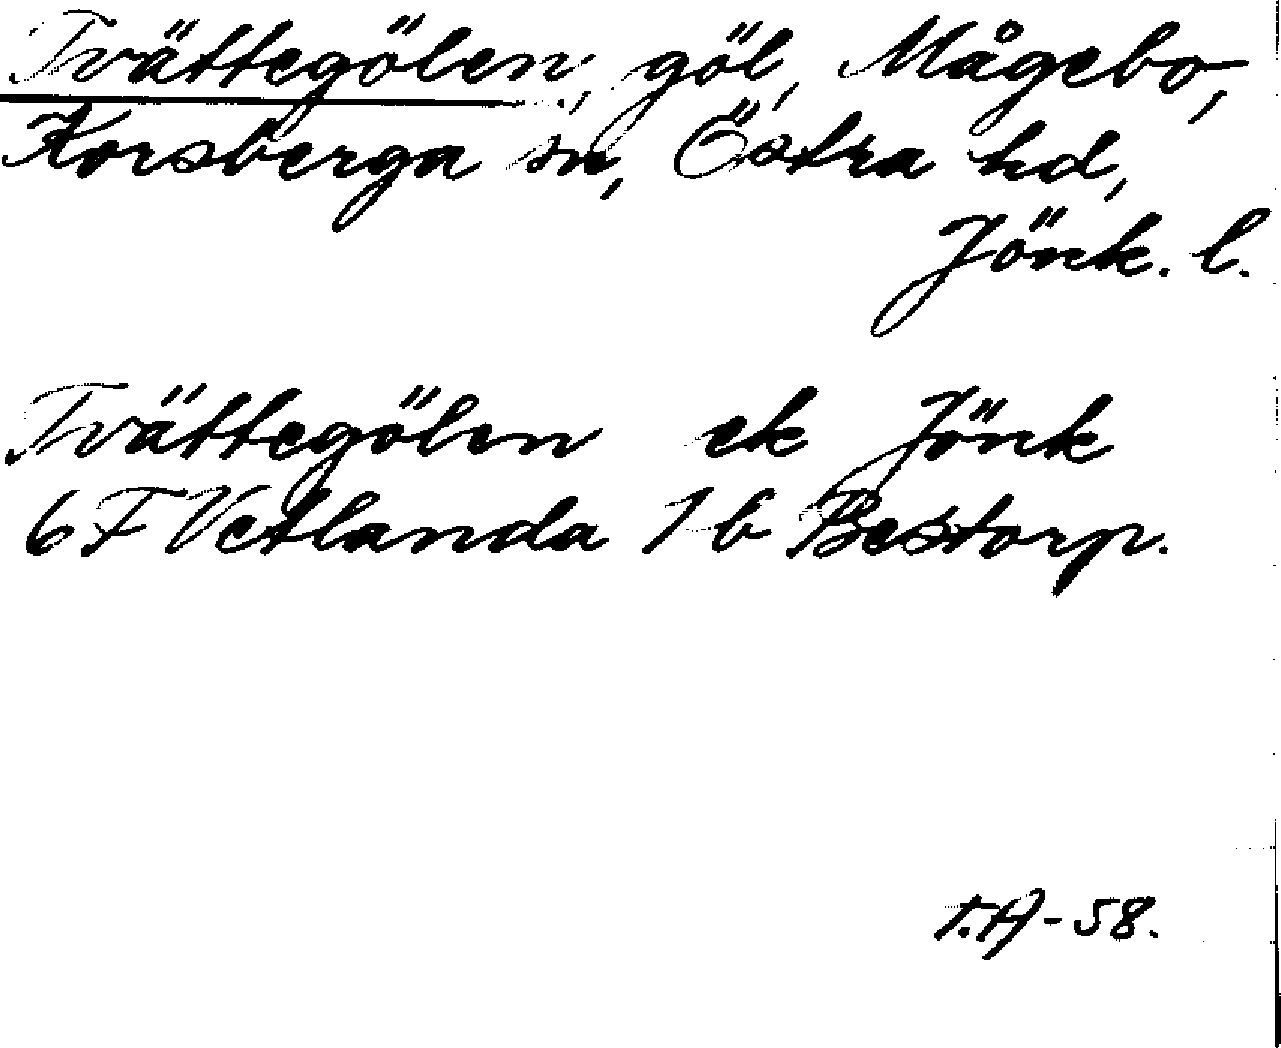 Tvättegölen, göl, Mågebo,
Korsberga sn, Östra hd,
Jönk. l.
Tvättegölen ek Jönk
6 F Vetlanda 1 b Bestorp.
T.A-58.